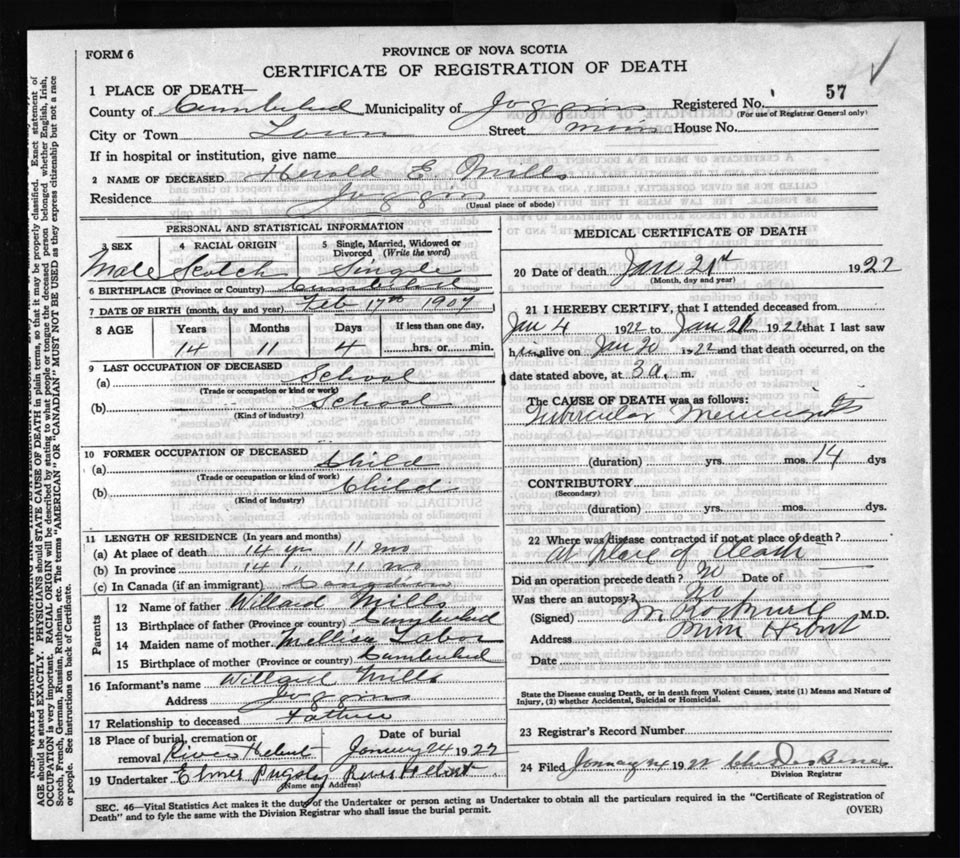 FORM 6
PROVINCE OF NOVA SCOTIA
CERTIFICATE OF REGISTRATION OF DEATH
1 PLACE OF DEATH—
57
County of Cumberland Municipality of Joggins Registered No.
(For use of Registrar General only)
City or Town Town Street Main House No.
If in hospital or institution, give name
2 NAME OF DECEASED Herald E. Mills
Residence Joggins
(Usual place of abode)
PERSONAL AND STATISTICAL INFORMATION
3 SEX 4 RACIAL ORIGIN 5 Single, Married, Widowed or Divorced (Write the word)
Male Scotch Single
6 BIRTHPLACE (Province or Country) Cumberland
7 DATE OF BIRTH (month, day and year) Feb 17th 1907
8 AGE Years Months Days If less than one day,
14 11 4 hrs. or min.
9 LAST OCCUPATION OF DECEASED
(a) School
(Trade or occupation or kind or work)
(b) School
(Kind of industry)
10 FORMER OCCUPATION OF DECEASED
(a) Child
(Trade or occupation or kind of work)
(b) Child
(Kind of industry)
11 LENGTH OF RESIDENCE (In years and months)
(a) At place of death 14 yrs 11 mo
(b) In province 14 " 11 mo
(c) In Canada (if an immigrant)
Parents
12 Name of father Willard Mills
13 Birthplace of father (Province or country) Cumberland
14 Maiden name of mother Mellisa Labor
15 Birthplace of mother (Province or country) Cumberland
16 Informant's name Willard Mills
Address Joggins
17 Relationship to deceased Father
18 Place of burial, cremation or removal River Hebert
Date of burial January 24 1922
19 Undertaker Elmer Pugsley River Hebert
(Name and address)
MEDICAL CERTIFICATE OF DEATH
20 Date of death Jan 21st 1922
(Month, day and year)
21 I HEREBY CERTIFY, that I attended deceased from
Jan 4 1922 to Jan 20 1922 that I last saw
him alive on Jan 20 1922 and that death occurred, on the
date stated above, at 3 a. m.
The CAUSE OF DEATH was as follows:
Tubercular Meningitis
(duration) yrs. mos. 14 dys
CONTRIBUTORY
(Secondary)
(duration) yrs. mos. dys.
22 Where was disease contracted if not at place of death?
at place of death
Did an operation precede death? No Date of
Was there an autopsy? No
(Signed) M Rockwell M.D.
Address River Hebert
Date
State the Disease causing Death, or in death from Violent Causes, state (1) Means and Nature of
Injury, (2) whether Accidental, Suicidal or Homicidal.
23 Registrar's Record Number
24 Filed January 24 1922
Division Registrar
SEC. 46—Vital Statistics Act makes it the duty of the Undertaker or person acting as Undertaker to obtain all the particulars required in the "Certificate of Registration of
Death" and to fyle the same with the Division Registrar who shall issue the burial permit.
(OVER)
AGE should be stated EXACTLY. PHYSICIANS should STATE CAUSE OF DEATH in plain terms, so that it may be properly classified. Exact statement of
OCCUPATION is very important. RACIAL ORIGIN will be described by stating to what people or tongue the deceased person belonged whether English, Irish,
Scotch, French, German, Russian, Ruthenian, etc. The terms "AMERICAN" OR "CANADIAN" MUST NOT BE USED as they express citizenship but not a race
or people. See instructions on back of Certificate.